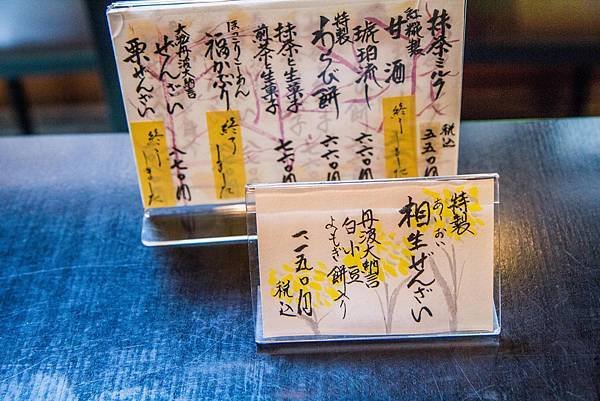 抹茶ミルク
税込
五五〇円
紅糀製
甘酒
終りました
琥珀流し
六六〇円
特製
わらび餅
六六〇円
抹茶と生菓子
煎茶と生菓子
七六〇円
ほっこりこーあん
福かぶり
終りました
大納言丹波大納言
ぜんざい
八七〇円
栗ぜんざい
終りました
特製
あいおい
相生ぜんざい
丹波大納言
白小豆
よもぎ餅入り
一、一五〇円
税込